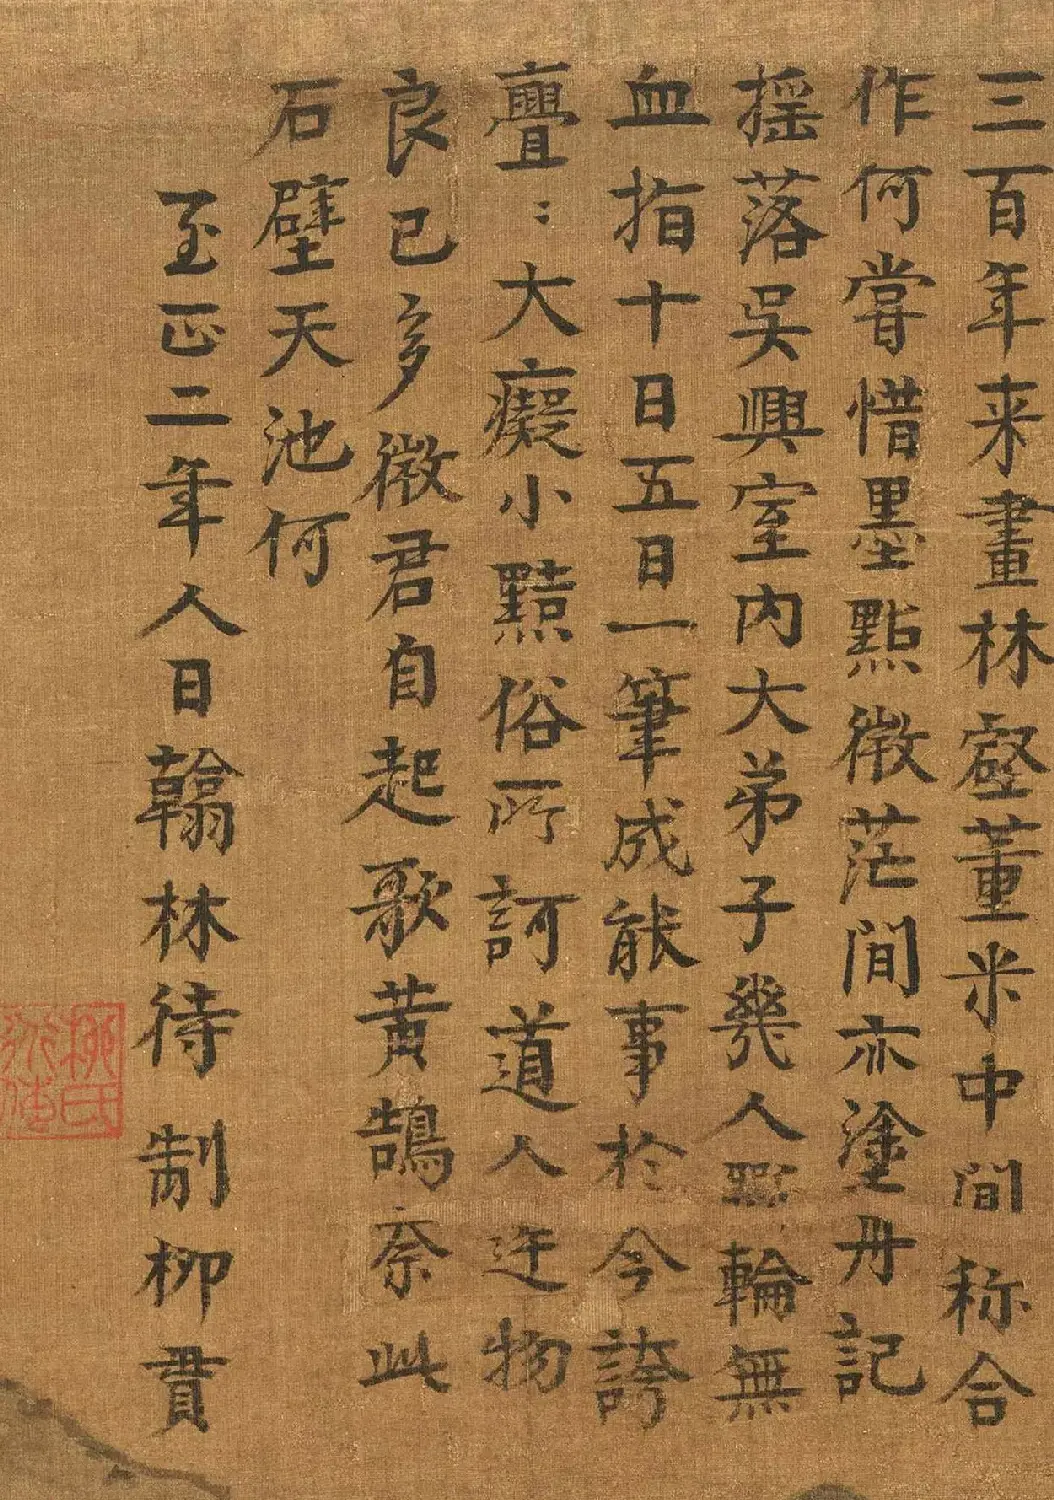 三百年来畫林壑董米中間称合
作何嘗惜墨點微茫間亦塗丹記
揺落吳興室内大弟子幾人斵輪無
血指十日五日一筆成能事於今誇
亹〻大癡小黠俗所訶道人迕物
良已多微君自起歌黃鵠奈此
石壁天池何
至正二年人日翰林待制柳貫
柳氏